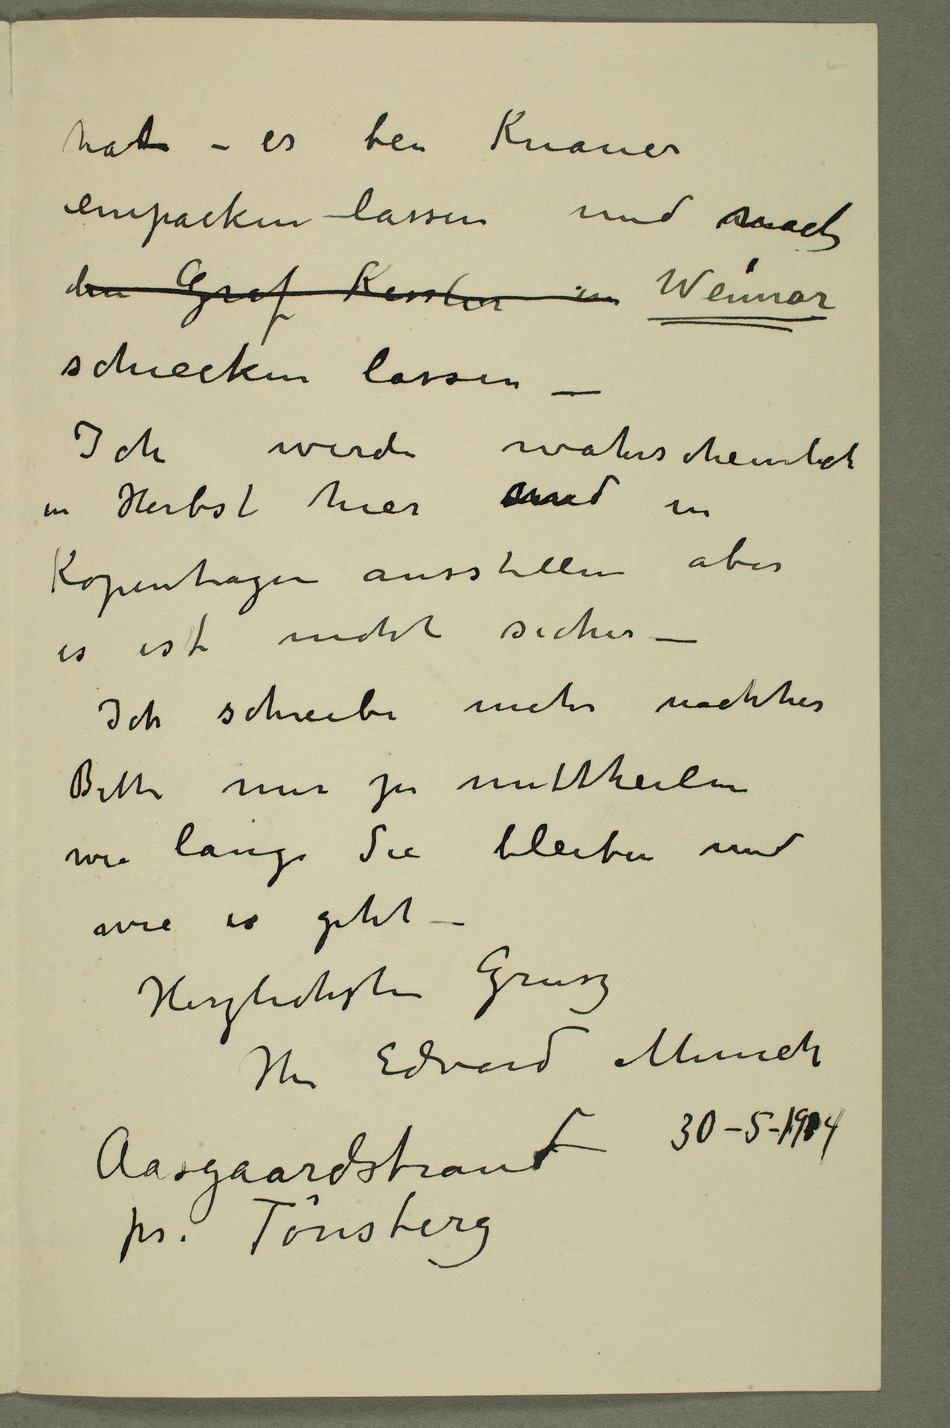 hat – es bei Knauer
einpacken lassen und nach
den Graf Kessler in Weimar
schiecken lassen –
Ich werde wahrscheinlich
in Herbst hier und in
Kopenhagen ausstellen aber
es ist nicht sicher –
Ich schreibe mehr nachher
Bitte mir zu mittheilen
wie lange Sie bleiben und
wie es geht –
Herzlichsten Grusz
Ihr Edvard Munch
Aasgaardstrand 30–5–1904
pr. Tönsberg